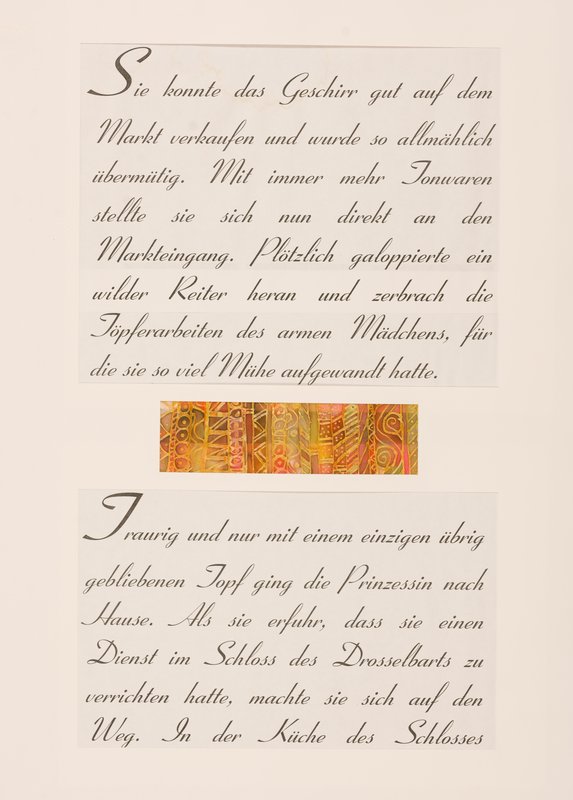 Sie konnte das Geschirr gut auf dem
Markt verkaufen und wurde so allmählich
übermütig. Mit immer mehr Tonwaren
stellte sie sich nun direkt an den
Markteingang. Plötzlich galoppierte ein
wilder Reiter heran und zerbrach die
Töpferarbeiten des armen Mädchens, für
die sie so viel Mühe aufgewandt hatte.
Traurig und nur mit einem einzigen übrig
gebliebenen Topf ging die Prinzessin nach
Hause. Als sie erfuhr, dass sie einen
Dienst im Schloss des Drosselbarts zu
verrichten hatte, machte sie sich auf den
Weg. In der Küche des Schlosses